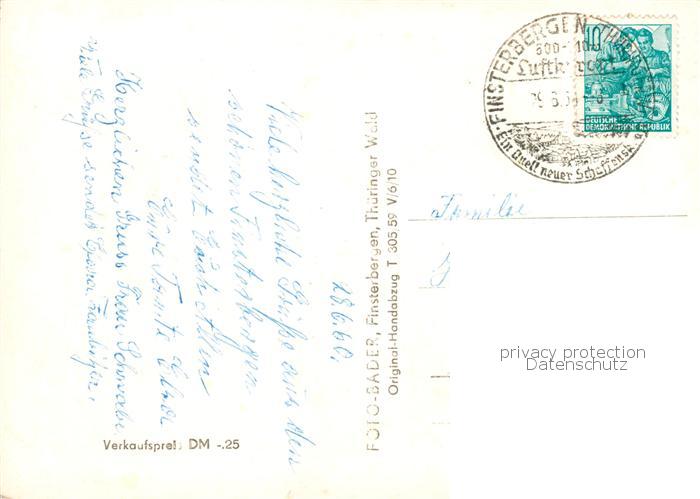 28.6.60.
Viele herzliche Grüße aus dem
schönen Finsterbergen
sendet Euch Allen
Eure Tante Elsa
Herzlichen Gruss Frau Schwabe
Viele Grüße sendet
Verkaufspreis DM -.25
FOTO-BADER, Finsterbergen, Thüringer Wald
Original-Handabzug T 305 59 V/6/10
FINSTERBERGEN (THÜR.
Luftkurort
Ein Quell neuer Schaffenskra
10
DEUTSCHE
DEMOKRATISCHE REPUBLIK
Familie
privacy protection
Datenschutz